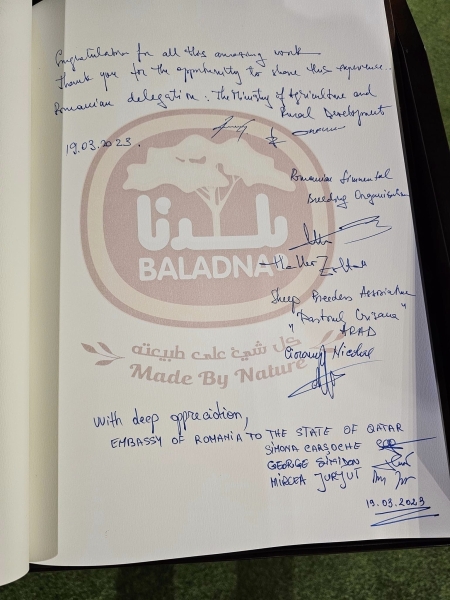 Congratulation for all this amazing work
thank you for the opportunity to share this experience...
Romanian delegation: The Ministry of Agriculture and
Rural Development
19.03.2023.
Romanian Simmental
Breeding Organisation
بلدنا
BALADNA
Haller Zoltan
Sheep Breeders Association
"Păstorul Crișana"
ARAD
كل شيء على طبيعته
Ciorany Nicolae
Made By Nature
With deep appreciation,
EMBASSY OF ROMANIA TO THE STATE OF QATAR
SIMONA CARȘOCHE
GEORGE SIMION
MIRCEA JURJUȚ
19.03.2023